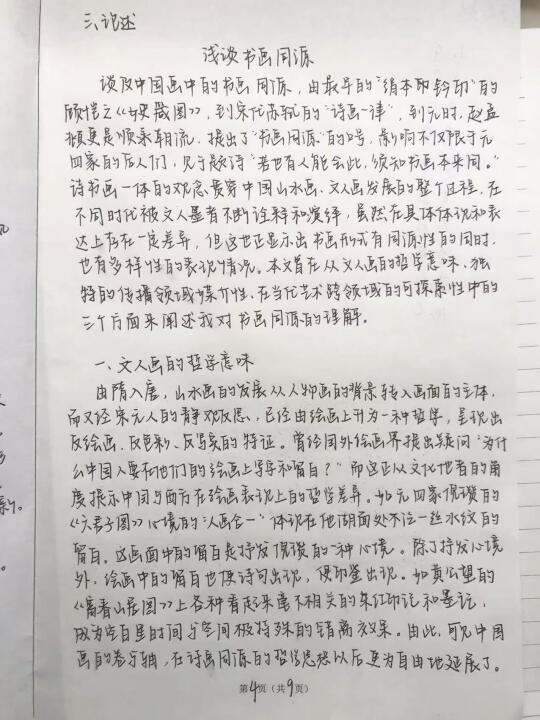 三、论述
浅谈书画同源
谈及中国画中的书画同源，由最早的“绢本印钤印”的
顾恺之《女史箴图》，到宋代苏轼的“诗画一律”，到元时，赵孟
頫更是顺承朝流，提出了“书画同源”的口号，影响不仅限于元
四家的后人们，见于题诗“若也有人能会此，须知书画本来同。”
诗书画一体的观念贯穿中国山水画、文人画发展的整个过程，在
不同时代被文人墨者不断诠释和演绎，虽然在具体体现和表
达上存在一定差异，但这也正显示出书画形式有同源性的同时，
也有多样性的表现情况。本文旨在从文人画的哲学意味、独
特的传播领域媒介性、在当代艺术跨领域的可探索性中的
三个方面来阐述我对书画同源的理解。
一、文人画的哲学意味
由隋入唐，山水画的发展从人物画的背景转入画面的主体，
而又经宋元人的静观反思，已经由绘画上升为一种哲学，呈现出
反绘画、反色彩、反写实的特证。曾经国外绘画界提出疑问“为什
么中国人要在他们的绘画上写字和留白？”而这正从文化他者的角
度提示中国与西方在绘画表现上的哲学差异。如元四家倪瓒的
《六君子图》心境的“人画合一”体现在他湖面处不泣一丝水纹的
留白。这画面中的留白是抒发倪瓒的一种心境。除了抒发心境
外，绘画中的留白也使诗句出现，使印鉴出现。如黄公望的
《富春山居图》上各种看起来毫不相关的朱红印记和墨记，
成为空白里时间与空间极特殊的错离效果。由此，可见中国
画的卷与轴，在诗画同源的哲学思想以后更为自由地延展了。
第4页（共9页）